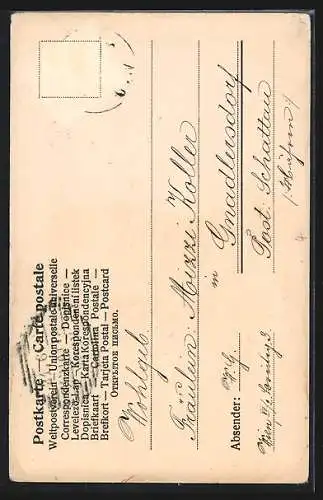 Postkarte — Carte postale
Weltpostverein — Union postale universelle
Correspondenzkarte — Dopisnice —
Levelező-Lap — Korespondenční lístek
Dopisnica — Karta Korespondencyjna
Briefkaart — Cartolina Postale —
Brefkort — Tarjeta Postal — Postcard
Открытое письмо.
Wohlgeb.
Fräulein: Mizzi Koller
in
Gnadlersdorf
Post: Schattau
/Mähren/
Absender:
Wien